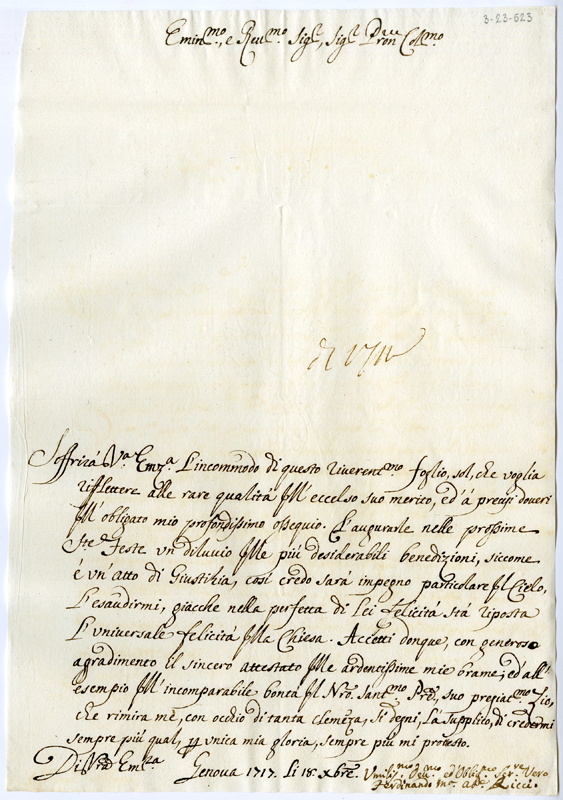 3-23-623
Emin.mo, e Reu.mo Sig.r, Sig.r Pron Col.mo
Soffrirá V.a Emza. L'incommodo di questo riuerent.mo foglio, sol, che voglia
riflettere alle rare qualitá dell' eccelso suo merito, ed' á precisi doueri
dell' obligato mio profondissimo ossequio. L'augurarle nelle prossime
S.te Feste vn' diluvio delle più desiderabili benedizioni, siccome
é vn' atto di Giustizia, cosí credo sará impegno particolare del Cielo,
L'esaudirmi, giacche nella perfetta di Lei felicitá stá riposta
L'vniuersale felicitá della Chiesa. Accetti donque, con generoso
agradimento il sincero attestato delle ardentissime mie brame; ed' all'
esempio dell' incomparabile bontá del Nro. Sant.mo Pre., suo pregiat.mo Zio,
che rimira mé, con occhio di tanta clemeza, Si degni, La supplito, di credermi
sempre piú qual, p vnica mia gloria, sempre piu mi protesto.
Di Vra Em.za Genova 1717. Li 18. Xbre. Vmilis.mo Deu.mo ed Obblig.mo Ser.re Vero
Ferdinando M.a ab.e Ricci